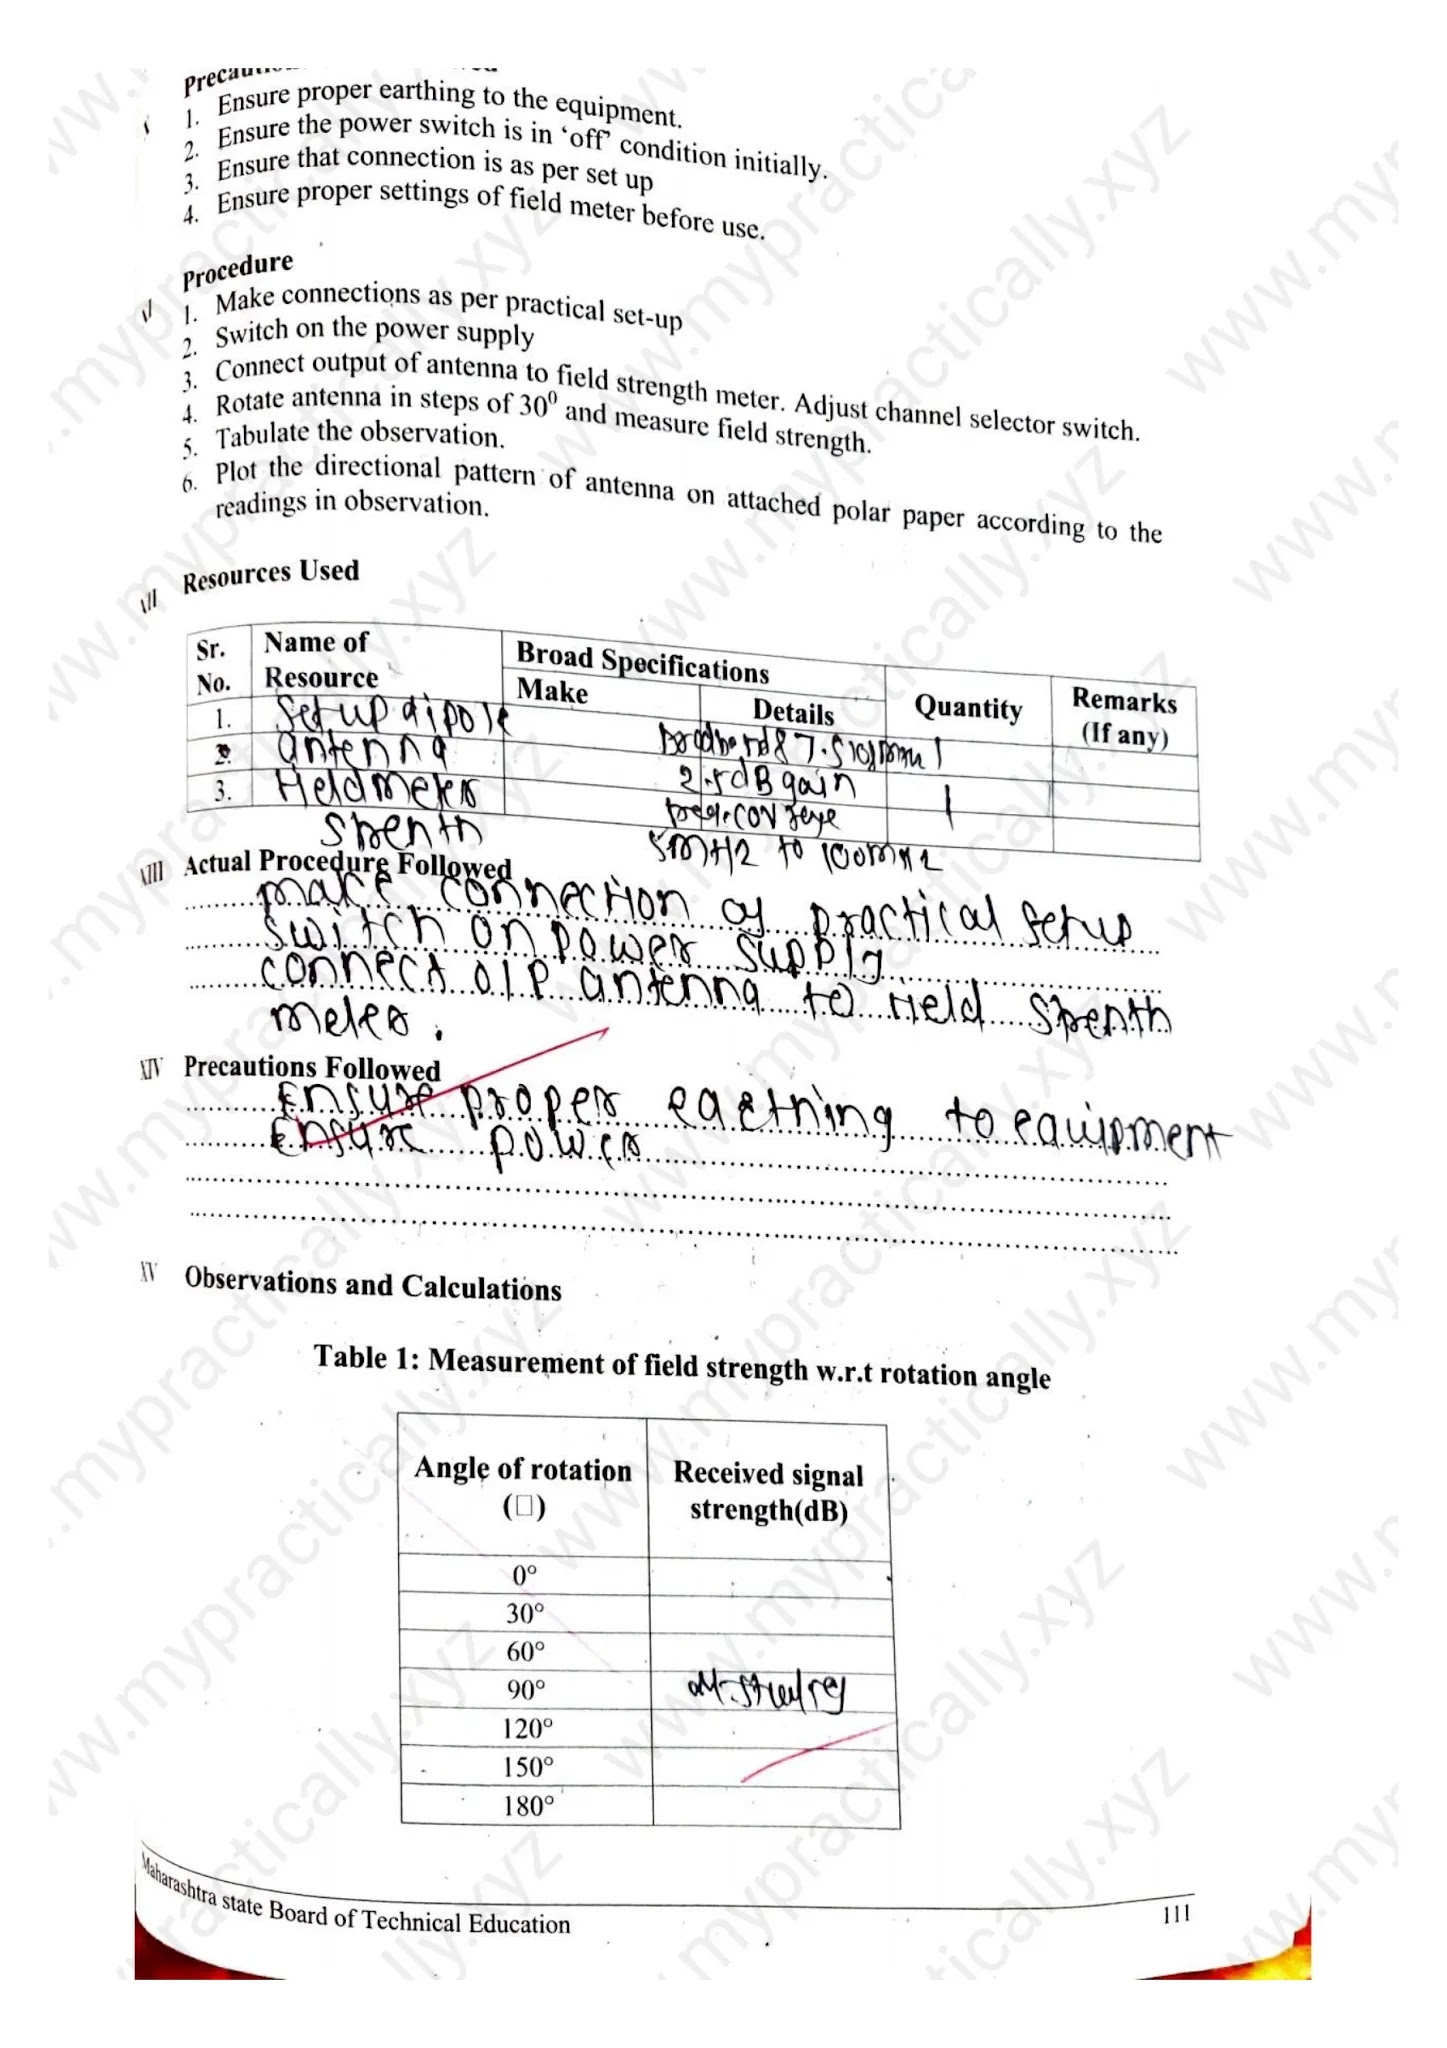 1. Ensure proper earthing to the equipment.
2. Ensure the power switch is in ‘off’ condition initially.
3. Ensure that connection is as per set up
4. Ensure proper settings of field meter before use.
Procedure
1. Make connections as per practical set-up
2. Switch on the power supply
3. Connect output of antenna to field strength meter. Adjust channel selector switch.
4. Rotate antenna in steps of 30⁰ and measure field strength.
5. Tabulate the observation.
6. Plot the directional pattern of antenna on attached polar paper according to the
readings in observation.
Resources Used
Sr. No. Name of Resource Broad Specifications Quantity Remarks (If any)
Make Details
1. Set up dipole 1
2. antenna 2.5dB gain
3. Field meter 1
5MHz to 100MHz
XIII Actual Procedure Followed
make connection of practical setup
switch on power supply
connect O/P antenna to field
meter.
XIV Precautions Followed
Ensure proper earthing to equipment
Ensure power
XV Observations and Calculations
Table 1: Measurement of field strength w.r.t rotation angle
Angle of rotation (□) Received signal strength(dB)
0°
30°
60°
90°
120°
150°
180°
Maharashtra state Board of Technical Education 111
www.mypractically.xyz